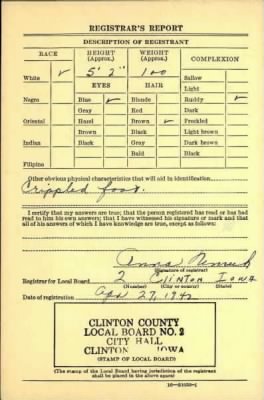 REGISTRAR'S REPORT
DESCRIPTION OF REGISTRANT
RACE HEIGHT (Approx.) WEIGHT (Approx.) COMPLEXION
White ✓ 5' 2" 100 Sallow
Light
Negro EYES HAIR
Blue ✓ Blonde Ruddy ✓
Gray Red Dark
Oriental Hazel Brown ✓ Freckled
Brown Black Light brown
Indian Black Gray Dark brown
Bald Black
Filipino
Other obvious physical characteristics that will aid in identification
Crippled foot.
I certify that my answers are true; that the person registered has read or has had
read to him his own answers; that I have witnessed his signature or mark and that
all of his answers of which I have knowledge are true, except as follows:
Anna
(Signature of registrar)
Registrar for Local Board 2 Clinton Iowa
(Number) (City or county) (State)
Date of registration Apr 27, 1942
CLINTON COUNTY
LOCAL BOARD NO. 2
CITY HALL
CLINTON IOWA
(STAMP OF LOCAL BOARD)
(The stamp of the Local Board having jurisdiction of the registrant
shall be placed in the above space)